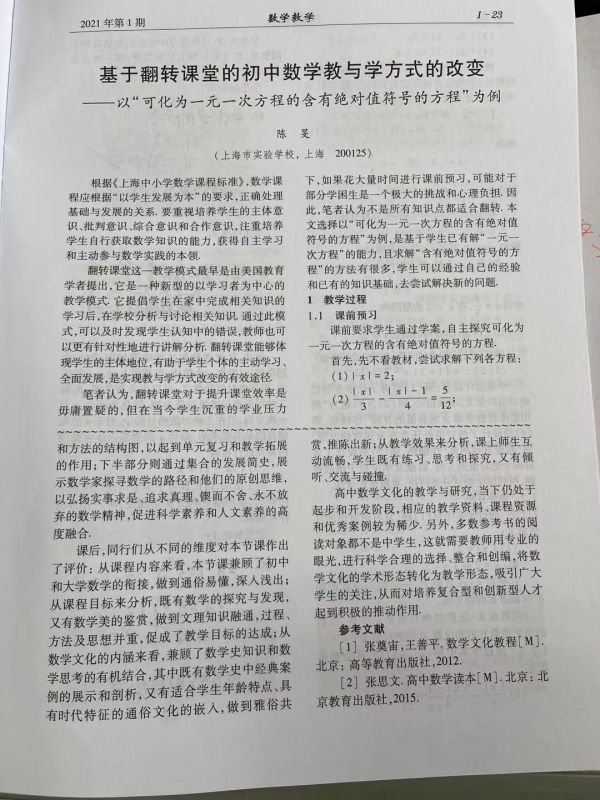 2021年第1期
数学教学
1-23
基于翻转课堂的初中数学教与学方式的改变
——以“可化为一元一次方程的含有绝对值符号的方程”为例
陈 旻
(上海市实验学校,上海 200125)
根据《上海中小学数学课程标准》,数学课
程应根据“以学生发展为本”的要求,正确处理
基础与发展的关系. 要重视培养学生的主体意
识、批判意识、综合意识和合作意识,注重培养
学生自行获取数学知识的能力,获得自主学习
和主动参与数学实践的本领.
翻转课堂这一教学模式最早是由美国教育
学者提出,它是一种新型的以学习者为中心的
教学模式. 它提倡学生在家中完成相关知识的
学习后,在学校分析与讨论相关知识. 通过此模
式,可以及时发现学生认知中的错误,教师也可
以更有针对性地进行讲解分析. 翻转课堂能够体
现学生的主体地位,有助于学生个体的主动学习、
全面发展,是实现教与学方式改变的有效途径.
笔者认为,翻转课堂对于提升课堂效率是
毋庸置疑的,但在当今学生沉重的学业压力
下,如果花大量时间进行课前预习,可能对于
部分学困生是一个极大的挑战和心理负担. 因
此,笔者认为不是所有知识点都适合翻转. 本
文选择以“可化为一元一次方程的含有绝对值
符号的方程”为例,是基于学生已有解“一元一
次方程”的能力,且求解“含有绝对值符号的方
程”的方法有很多,学生可以通过自己的经验
和已有的知识基础,去尝试解决新的问题.
1 教学过程
1.1 课前预习
课前要求学生通过学案,自主探究可化为
一元一次方程的含有绝对值符号的方程.
首先,先不看教材,尝试求解下列各方程:
(1) |x|=2;
(2) |x|/3 - (|x|-1)/4 = 5/12;
和方法的结构图,以起到单元复习和教学拓展
的作用;下半部分则通过集合的发展简史,展
示数学家探寻数学的路径和他们的原创思维,
以弘扬实事求是、追求真理、锲而不舍、永不放
弃的数学精神,促进科学素养和人文素养的高
度融合.
课后,同行们从不同的维度对本节课作出
了评价: 从课程内容来看,本节课兼顾了初中
和大学数学的衔接,做到通俗易懂,深入浅出;
从课程目标来分析,既有数学的探究与发现,
又有数学美的鉴赏,做到文理知识融通,过程、
方法及思想并重,促成了教学目标的达成;从
数学文化的内涵来看,兼顾了数学史知识和数
学思考的有机结合,其中既有数学史中经典案
例的展示和剖析,又有适合学生年龄特点、具
有时代特征的通俗文化的嵌入,做到雅俗共
赏,推陈出新;从教学效果来分析,课上师生互
动流畅,学生既有练习、思考和探究,又有倾
听、交流与碰撞.
高中数学文化的教学与研究,当下仍处于
起步和开发阶段,相应的教学资料、课程资源
和优秀案例较为稀少. 另外,多数参考书的阅
读对象都不是中学生,这就需要教师用专业的
眼光,进行科学合理的选择、整合和创编,将数
学文化的学术形态转化为教学形态,吸引广大
学生的关注,从而对培养复合型和创新型人才
起到积极的推动作用.
参考文献
[1] 张奠宙,王善平. 数学文化教程[M].
北京: 高等教育出版社,2012.
[2] 张思文. 高中数学读本[M]. 北京: 北
京教育出版社,2015.